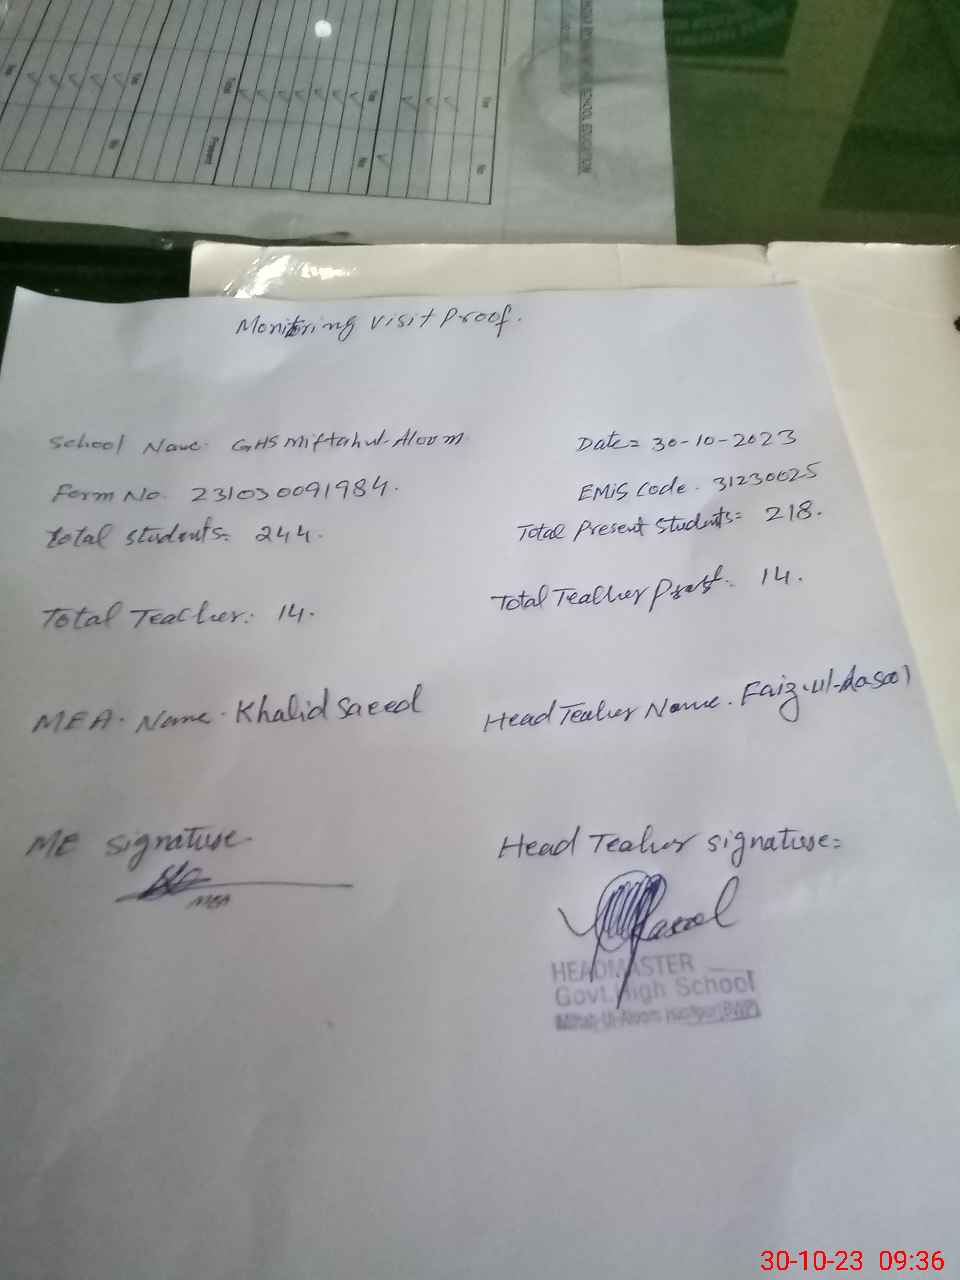 Monitoring Visit Proof.
School Name: GHS Miftahul-Aloom
Date = 30-10-2023
Form No. 231030091984.
EMIS Code. 31230025
Total Students: 244.
Total Present Students: 218.
Total Teacher: 14.
Total Teacher Prst: 14.
MEA. Name. Khalid Saeed
Head Teacher Name. Faiz-ul-Rasool
ME Signature
MEA
Head Teacher Signature=
Rasool
HEADMASTER
Govt. High School
30-10-23 09:36
Yes
No
Yes
No
Total
Present
Yes
No
Yes
SCHOOL EDUCATION